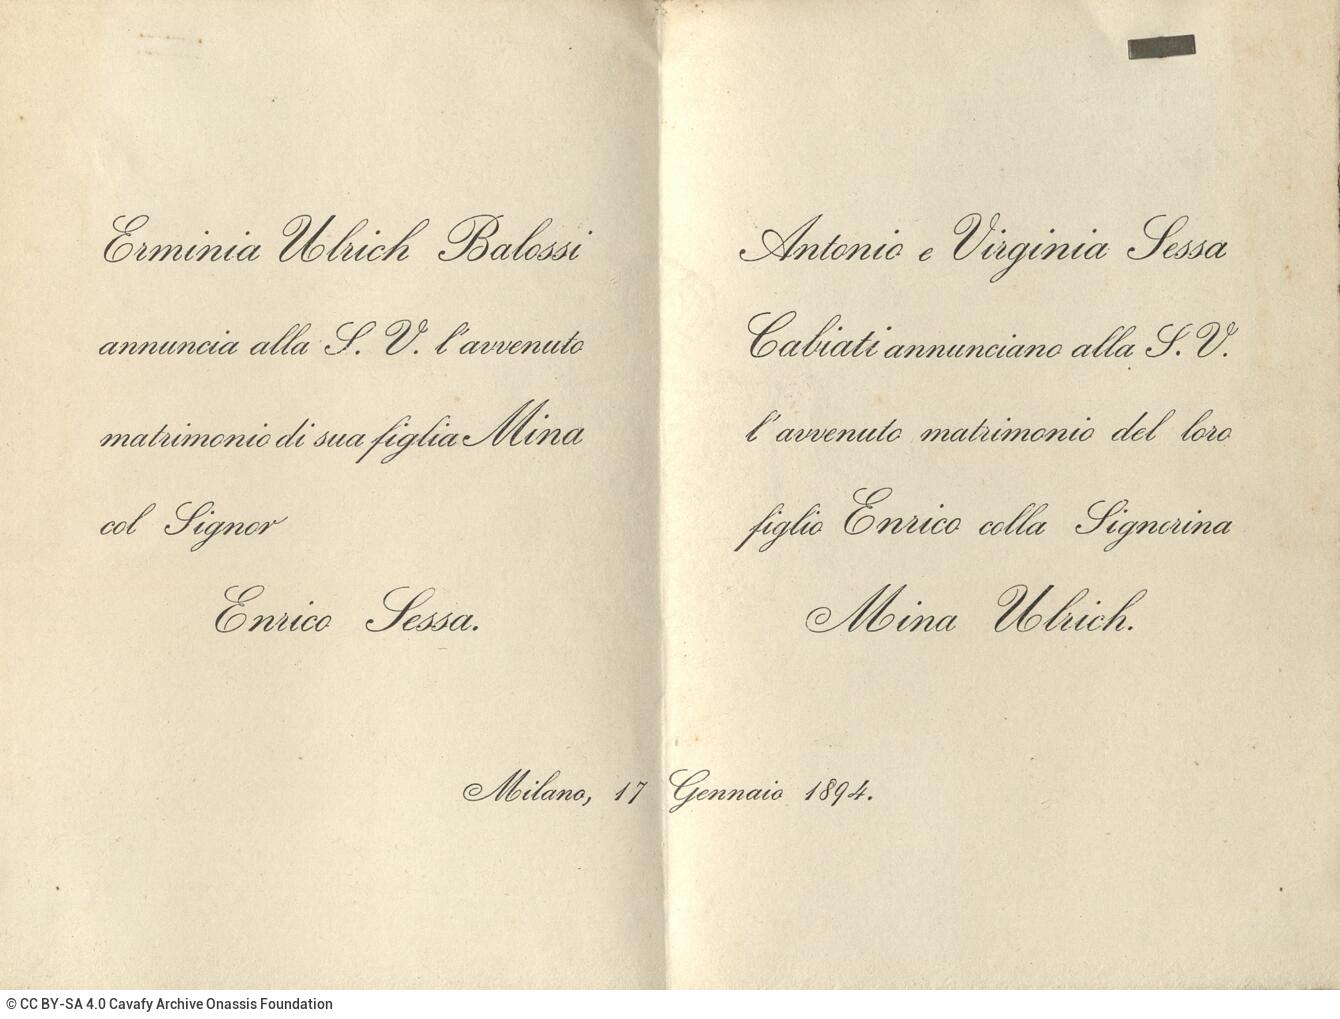 Erminia Ulrich Balossi
annuncia alla S. V. l'avvenuto
matrimonio di sua figlia Mina
col Signor
Enrico Sessa.
Antonio e Virginia Sessa
Cabiati annunciano alla S. V.
l'avvenuto matrimonio del loro
figlio Enrico colla Signorina
Mina Ulrich.
Milano, 17 Gennaio 1894.
© CC BY-SA 4.0 Cavafy Archive Onassis Foundation